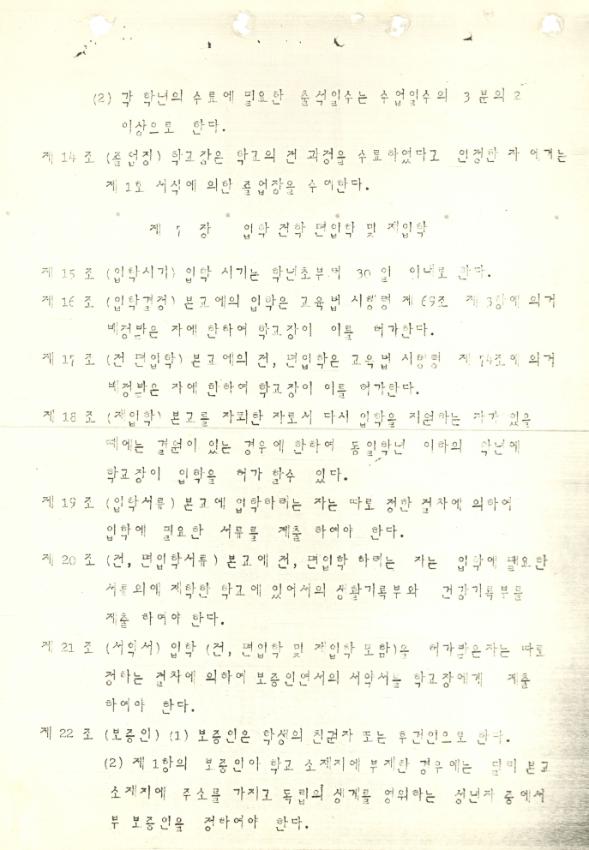 (2) 각 학년의 수료에 필요한 출석일수는 수업일수의 3 분의 2
이상으로 한다.
제 14 조 (졸업장) 학교장은 학교의 전 과정을 수료하였다고 인정한 자 에게는
제 1호 서식에 의한 졸업장을 수여한다.
제 7 장 입학 전학 편입학 및 재입학
제 15 조 (입학시기) 입학 시기는 학년초부터 30 일 이내로 한다.
제 16 조 (입학결정) 본교에의 입학은 교육법 시행령 제 69조 제 3항에 의거
배정받은 자에 한하여 학교장이 이를 허가한다.
제 17 조 (전 편입학) 본교에의 전, 편입학은 교육법 시행령 제 74조에 의거
배정받은 자에 한하여 학교장이 이를 허가한다.
제 18 조 (재입학) 본교를 자퇴한 자로서 다시 입학을 지원하는 자가 있을
때에는 결원이 있는 경우에 한하여 동일학년 이하의 학년에
학교장이 입학을 허가 할수 있다.
제 19 조 (입학서류) 본교에 입학하려는 자는 따로 정한 절차에 의하여
입학에 필요한 서류를 제출 하여야 한다.
제 20 조 (전, 편입학서류) 본교에 전, 편입학 하려는 자는 입학에 필요한
서류외에 재학한 학교에 있어서의 생활기록부와 건강기록부를
제출 하여야 한다.
제 21 조 (서약서) 입학 (전, 편입학 및 재입학 포함)을 허가받은자는 따로
정하는 절차에 의하여 보증인연서의 서약서를 학교장에게 제출
하여야 한다.
제 22 조 (보증인) (1) 보증인은 학생의 친권자 또는 후견인으로 한다.
(2) 제 1항의 보증인이 학교 소재지에 부재한 경우에는 달리 본교
소재지에 주소를 가지고 독립의 생계를 영위하는 성년자 중에서
부 보증인을 정하여야 한다.